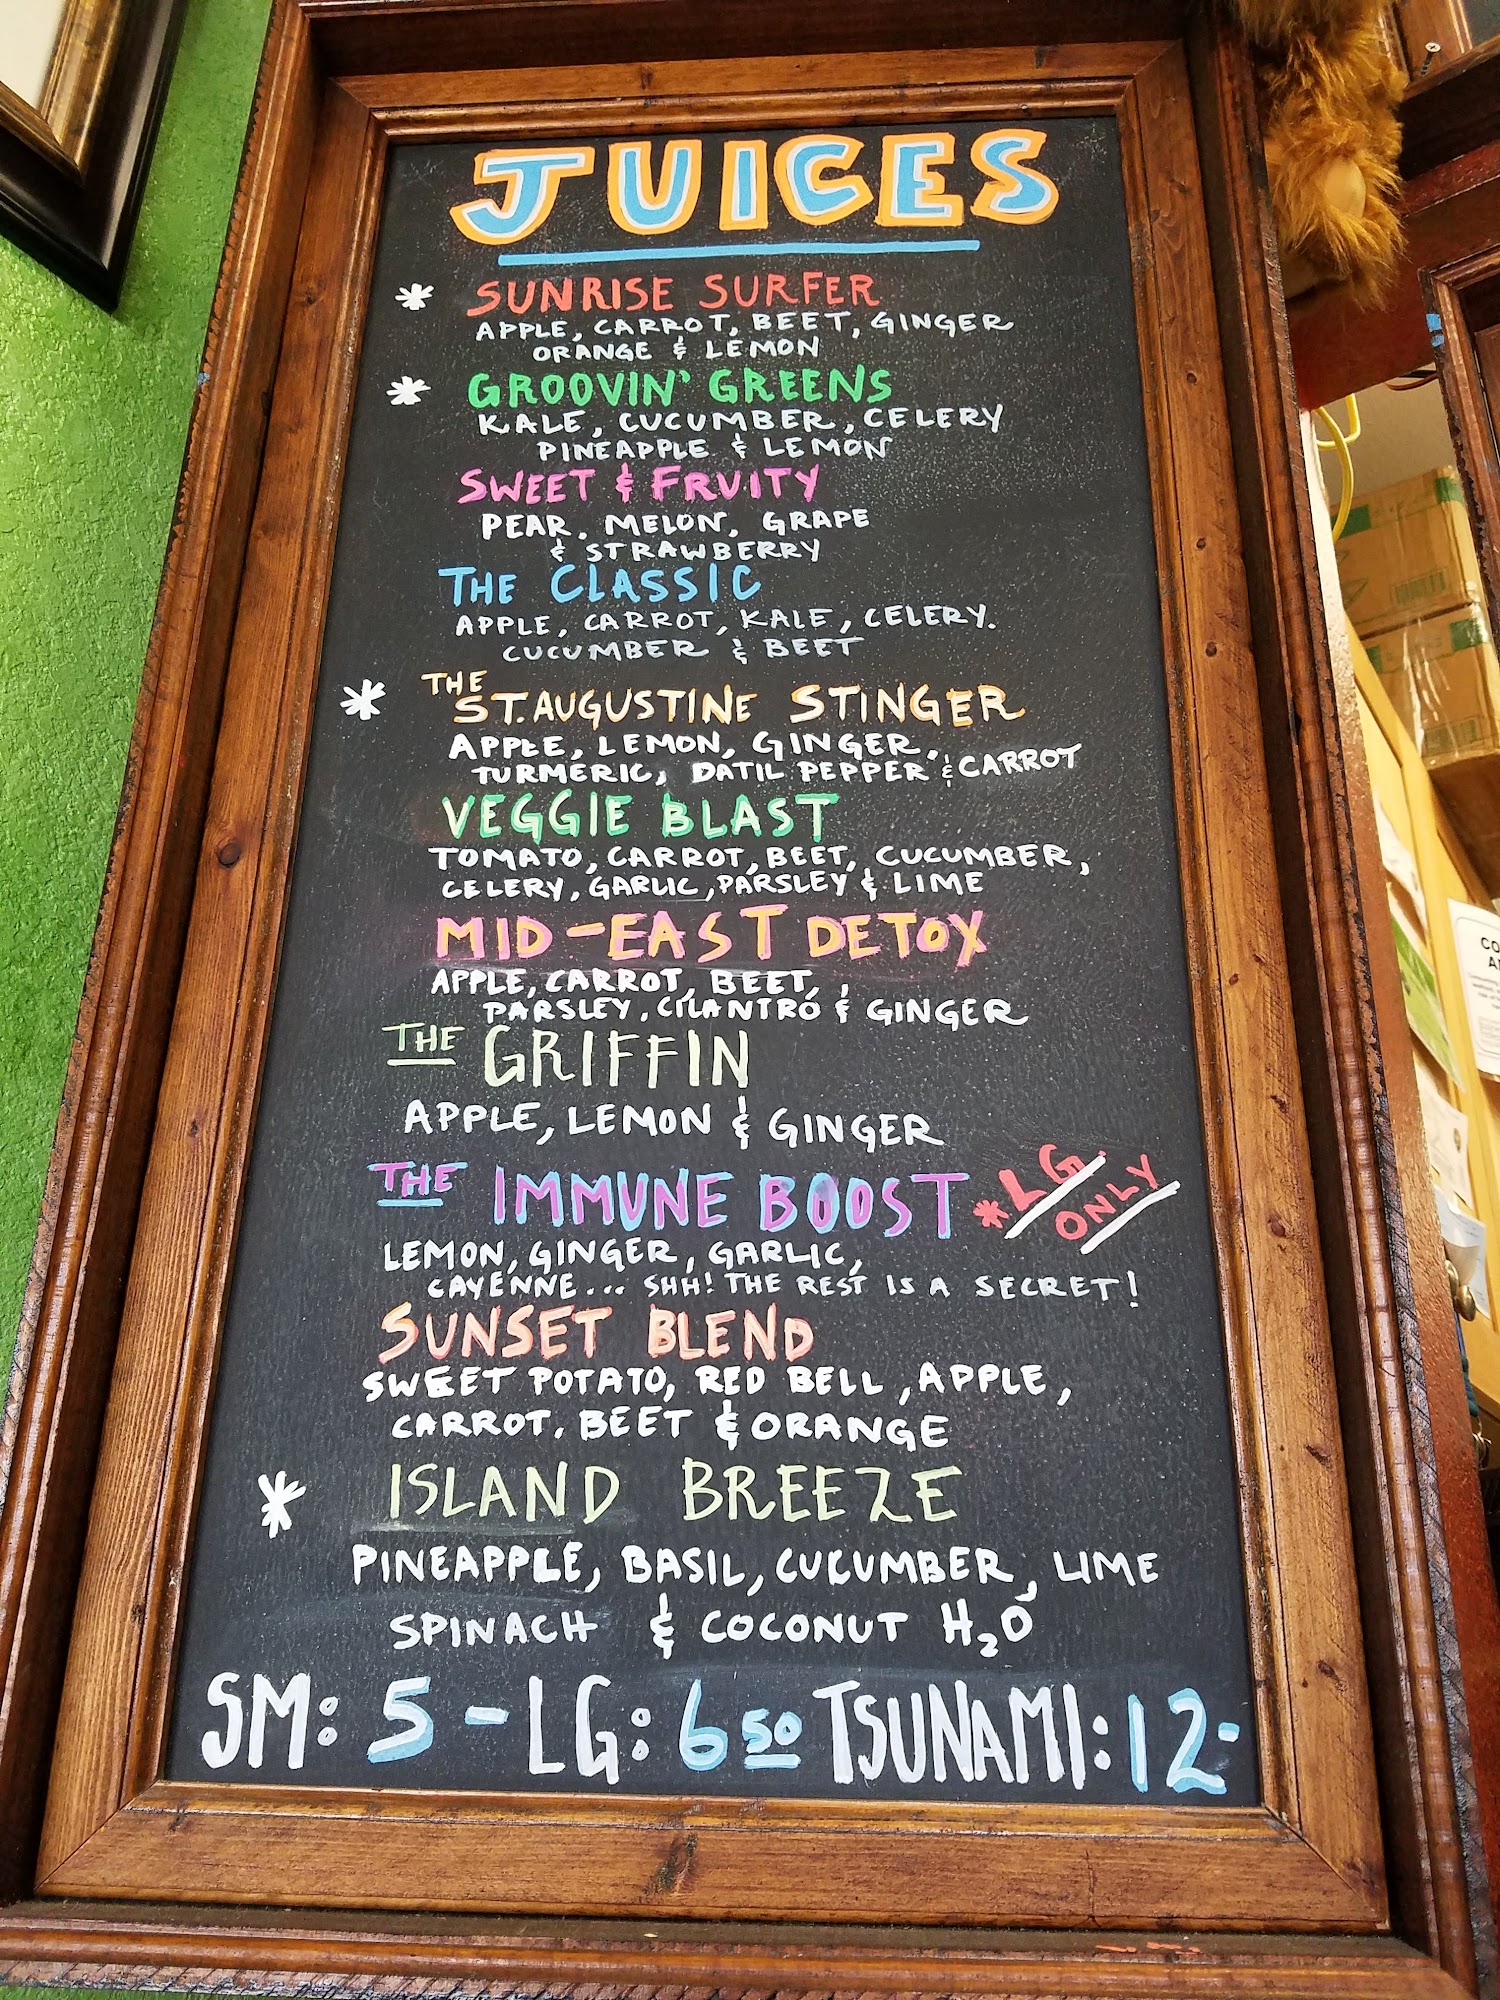 JUICES
* SUNRISE SURFER
APPLE, CARROT, BEET, GINGER
ORANGE & LEMON
* GROOVIN' GREENS
KALE, CUCUMBER, CELERY
PINEAPPLE & LEMON
SWEET & FRUITY
PEAR, MELON, GRAPE
& STRAWBERRY
THE CLASSIC
APPLE, CARROT, KALE, CELERY.
CUCUMBER & BEET
* THE ST. AUGUSTINE STINGER
APPLE, LEMON, GINGER,
TURMERIC, DATIL PEPPER & CARROT
VEGGIE BLAST
TOMATO, CARROT, BEET, CUCUMBER,
CELERY, GARLIC, PARSLEY & LIME
MID-EAST DETOX
APPLE, CARROT, BEET, ,
PARSLEY, CILANTRO & GINGER
THE GRIFFIN
APPLE, LEMON & GINGER
THE IMMUNE BOOST *LG. ONLY
LEMON, GINGER, GARLIC,
CAYENNE... SHH! THE REST IS A SECRET!
SUNSET BLEND
SWEET POTATO, RED BELL, APPLE,
CARROT, BEET & ORANGE
* ISLAND BREEZE
PINEAPPLE, BASIL, CUCUMBER, LIME
SPINACH & COCONUT H2O
SM: 5 - LG: 6 50 TSUNAMI: 12-